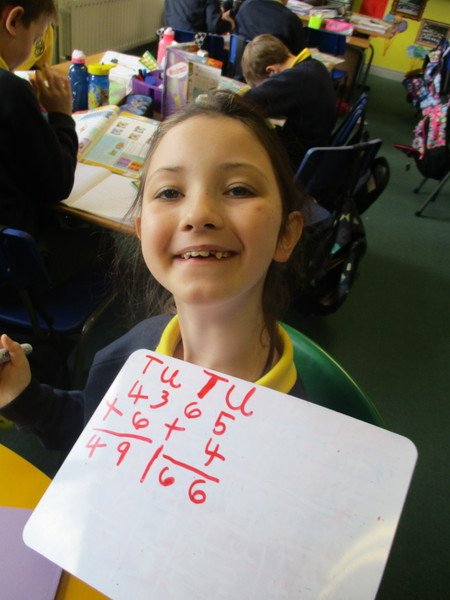 TU TU
43 65
+ 6 + 4
49 | 66